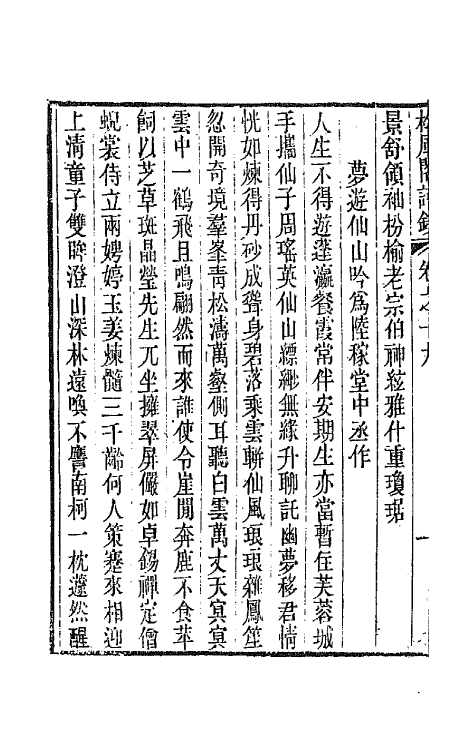 松風閣詩鈔 卷
景舒領袖枌榆老宗伯神紘雅什重瓊琚
夢遊仙山吟爲陸稼堂中丞作
人生不得遊蓬瀛餐霞常伴安期生亦當暫住芙蓉城
手攜仙子周瑤英仙山縹緲無緣升聊託幽夢移君情
恍如煉得丹砂成聳身碧落乘雲輧仙風琅琅雜鳳笙
忽開奇境羣峯靑松濤萬壑側耳聽白雲萬丈天㝠㝠
雲中一鶴飛且鳴翩然而來誰使令崖閒奔鹿不食苹
飼以芝草斑晶瑩先生兀坐擁翠屏儼如卓錫禪定僧
蜺裳侍立兩娉婷玉姜煉髓三千齡何人策蹇來相迎
上淸童子雙眸澄山深林遠喚不譍南柯一枕蘧然醒